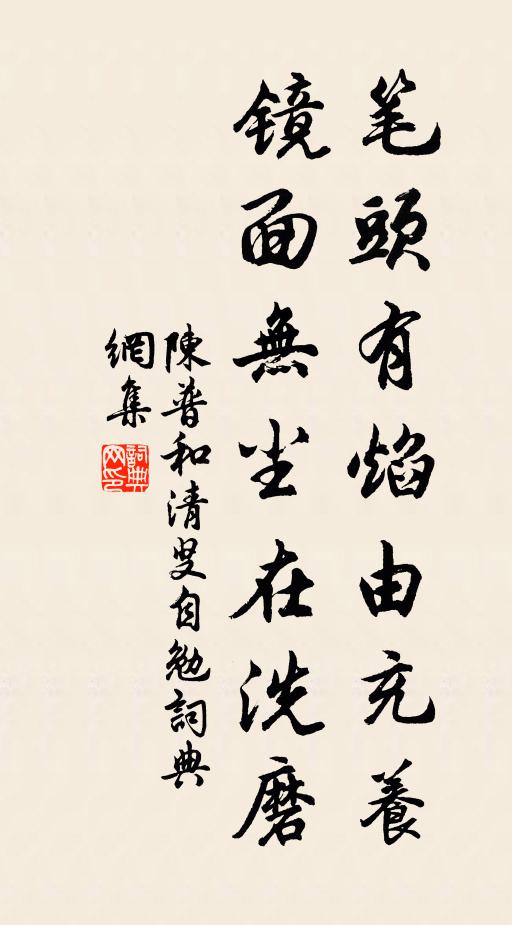 笔頭有焰由充養
镜面無尘在洗磨
陳普和清叟自勉詞典
網集
詞典
网印